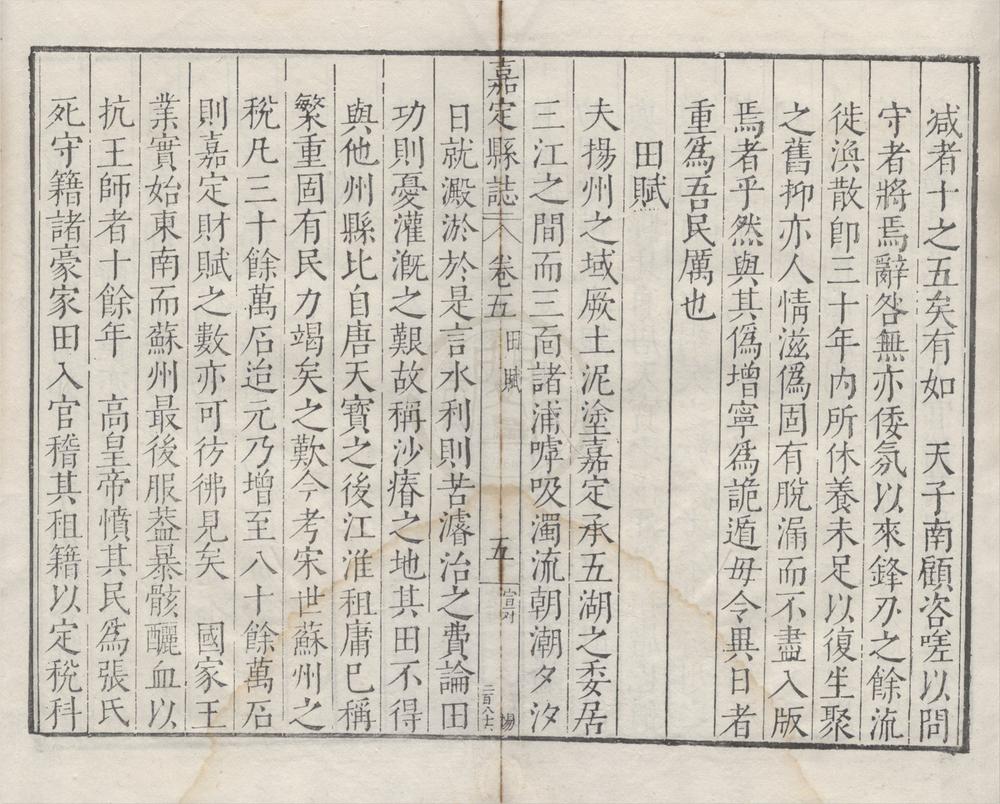 减者十之五矣有如　天子南顧咨嗟以問
守者將焉辭咎無亦倭氛以來鋒刃之餘流
徙渙散卽三十年內所休養未足以復生聚
之舊抑亦人情滋僞固有脫漏而不盡入版
焉者乎然與其僞增寧爲詭遁毋令異日者
重爲吾民厲也
田賦
夫揚州之域厥土泥塗嘉定承五湖之委居
三江之間而三面諸浦嘑吸濁流朝潮夕汐
嘉定縣誌　卷五　田賦　五
日就澱淤於是言水利則苦濬治之費論田
功則憂灌漑之艱故稱沙瘠之地其田不得
與他州縣比自唐天寶之後江淮租庸巳稱
繁重固有民力竭矣之歎今考宋世蘇州之
稅凡三十餘萬石迨元乃增至八十餘萬石
則嘉定財賦之數亦可彷彿見矣　國家王
業實始東南而蘇州最後服葢暴骸釃血以
抗王師者十餘年　高皇帝憤其民爲張氏
死守籍諸豪家田入官稽其租籍以定稅科